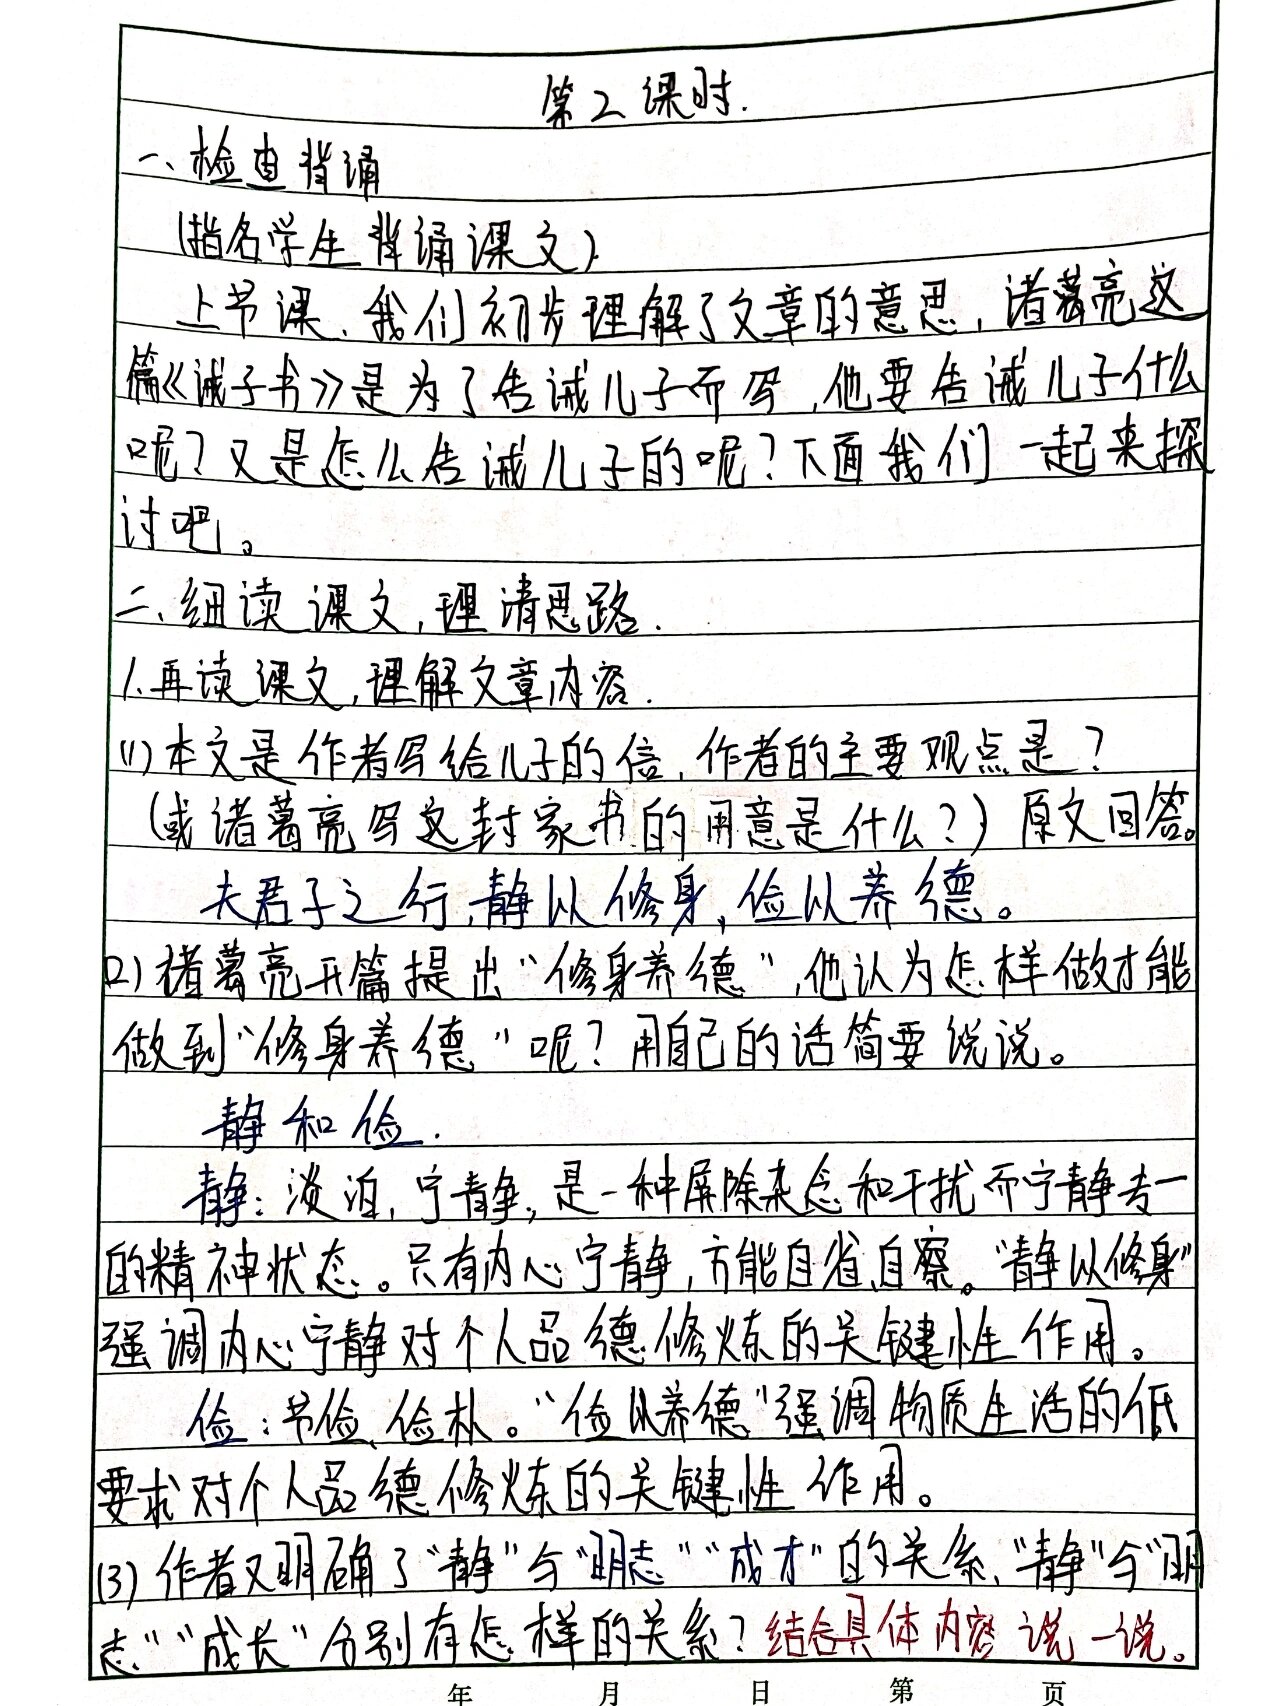 第2课时.
一、检查背诵
(指名学生背诵课文)
上节课、我们初步理解了文章的意思,诸葛亮这
篇《诫子书》是为了告诫儿子而写,他要告诫儿子什么
呢?又是怎么告诫儿子的呢?下面我们一起来探
讨吧。
二、细读课文,理清思路.
1、再读课文,理解文章内容.
(1)本文是作者写给儿子的信,作者的主要观点是?
(或诸葛亮写这封家书的用意是什么?)原文回答。
夫君子之行,静以修身,俭以养德。
(2)诸葛亮开篇提出“修身养德”,他认为怎样做才能
做到“修身养德”呢?用自己的话简要说说。
静和俭.
静:淡泊,宁静,是一种屏除杂念和干扰而宁静专一
的精神状态。只有内心宁静,方能自省、自察。“静以修身”
强调内心宁静对个人品德修炼的关键性作用。
俭:节俭、俭朴。“俭以养德”强调物质生活的低
要求对个人品德修炼的关键性作用。
(3)作者又明确了“静”与“明志”“成才”的关系,“静”与“明
志”“成长”分别有怎样的关系?结合具体内容说一说。
年 月 日 第 页